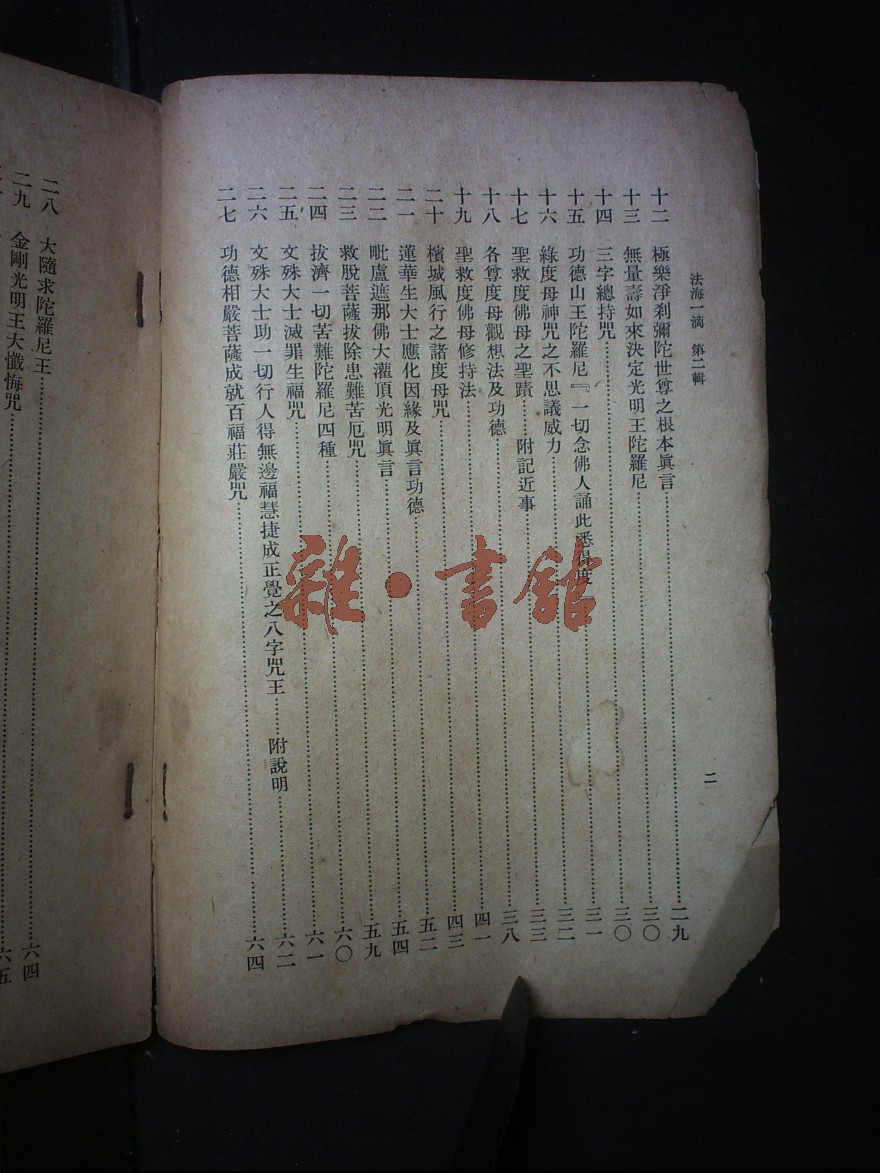 法海一滴 第二輯
二
十二 極樂淨刹彌陀世尊之根本眞言……二九
十三 無量壽如來決定光明王陀羅尼……三〇
十四 三字總持咒……三〇
十五 功德山王陀羅尼『一切念佛人誦此悉得度』……三一
十六 綠度母神咒之不思議威力……三二
十七 聖救度佛母之聖蹟……附記近事……三三
十八 各尊度母觀想法及功德……三八
十九 聖救度佛母修持法……四一
二十 檳城風行之諸度母咒……四三
二一 蓮華生大士應化因緣及眞言功德……五二
二二 毗盧遮那佛大灌頂光明眞言……五四
二三 救脫菩薩拔除患難苦厄咒……五九
二四 拔濟一切苦難陀羅尼四種……六〇
二五 文殊大士滅罪生福咒……六一
二六 文殊大士助一切行人得無邊福慧捷成正覺之八字咒王……附說明……六二
二七 功德相嚴菩薩成就百福莊嚴咒……六四
二八 大隨求陀羅尼王……六四
二九 金剛光明王大懺悔咒……六五
雜·書館